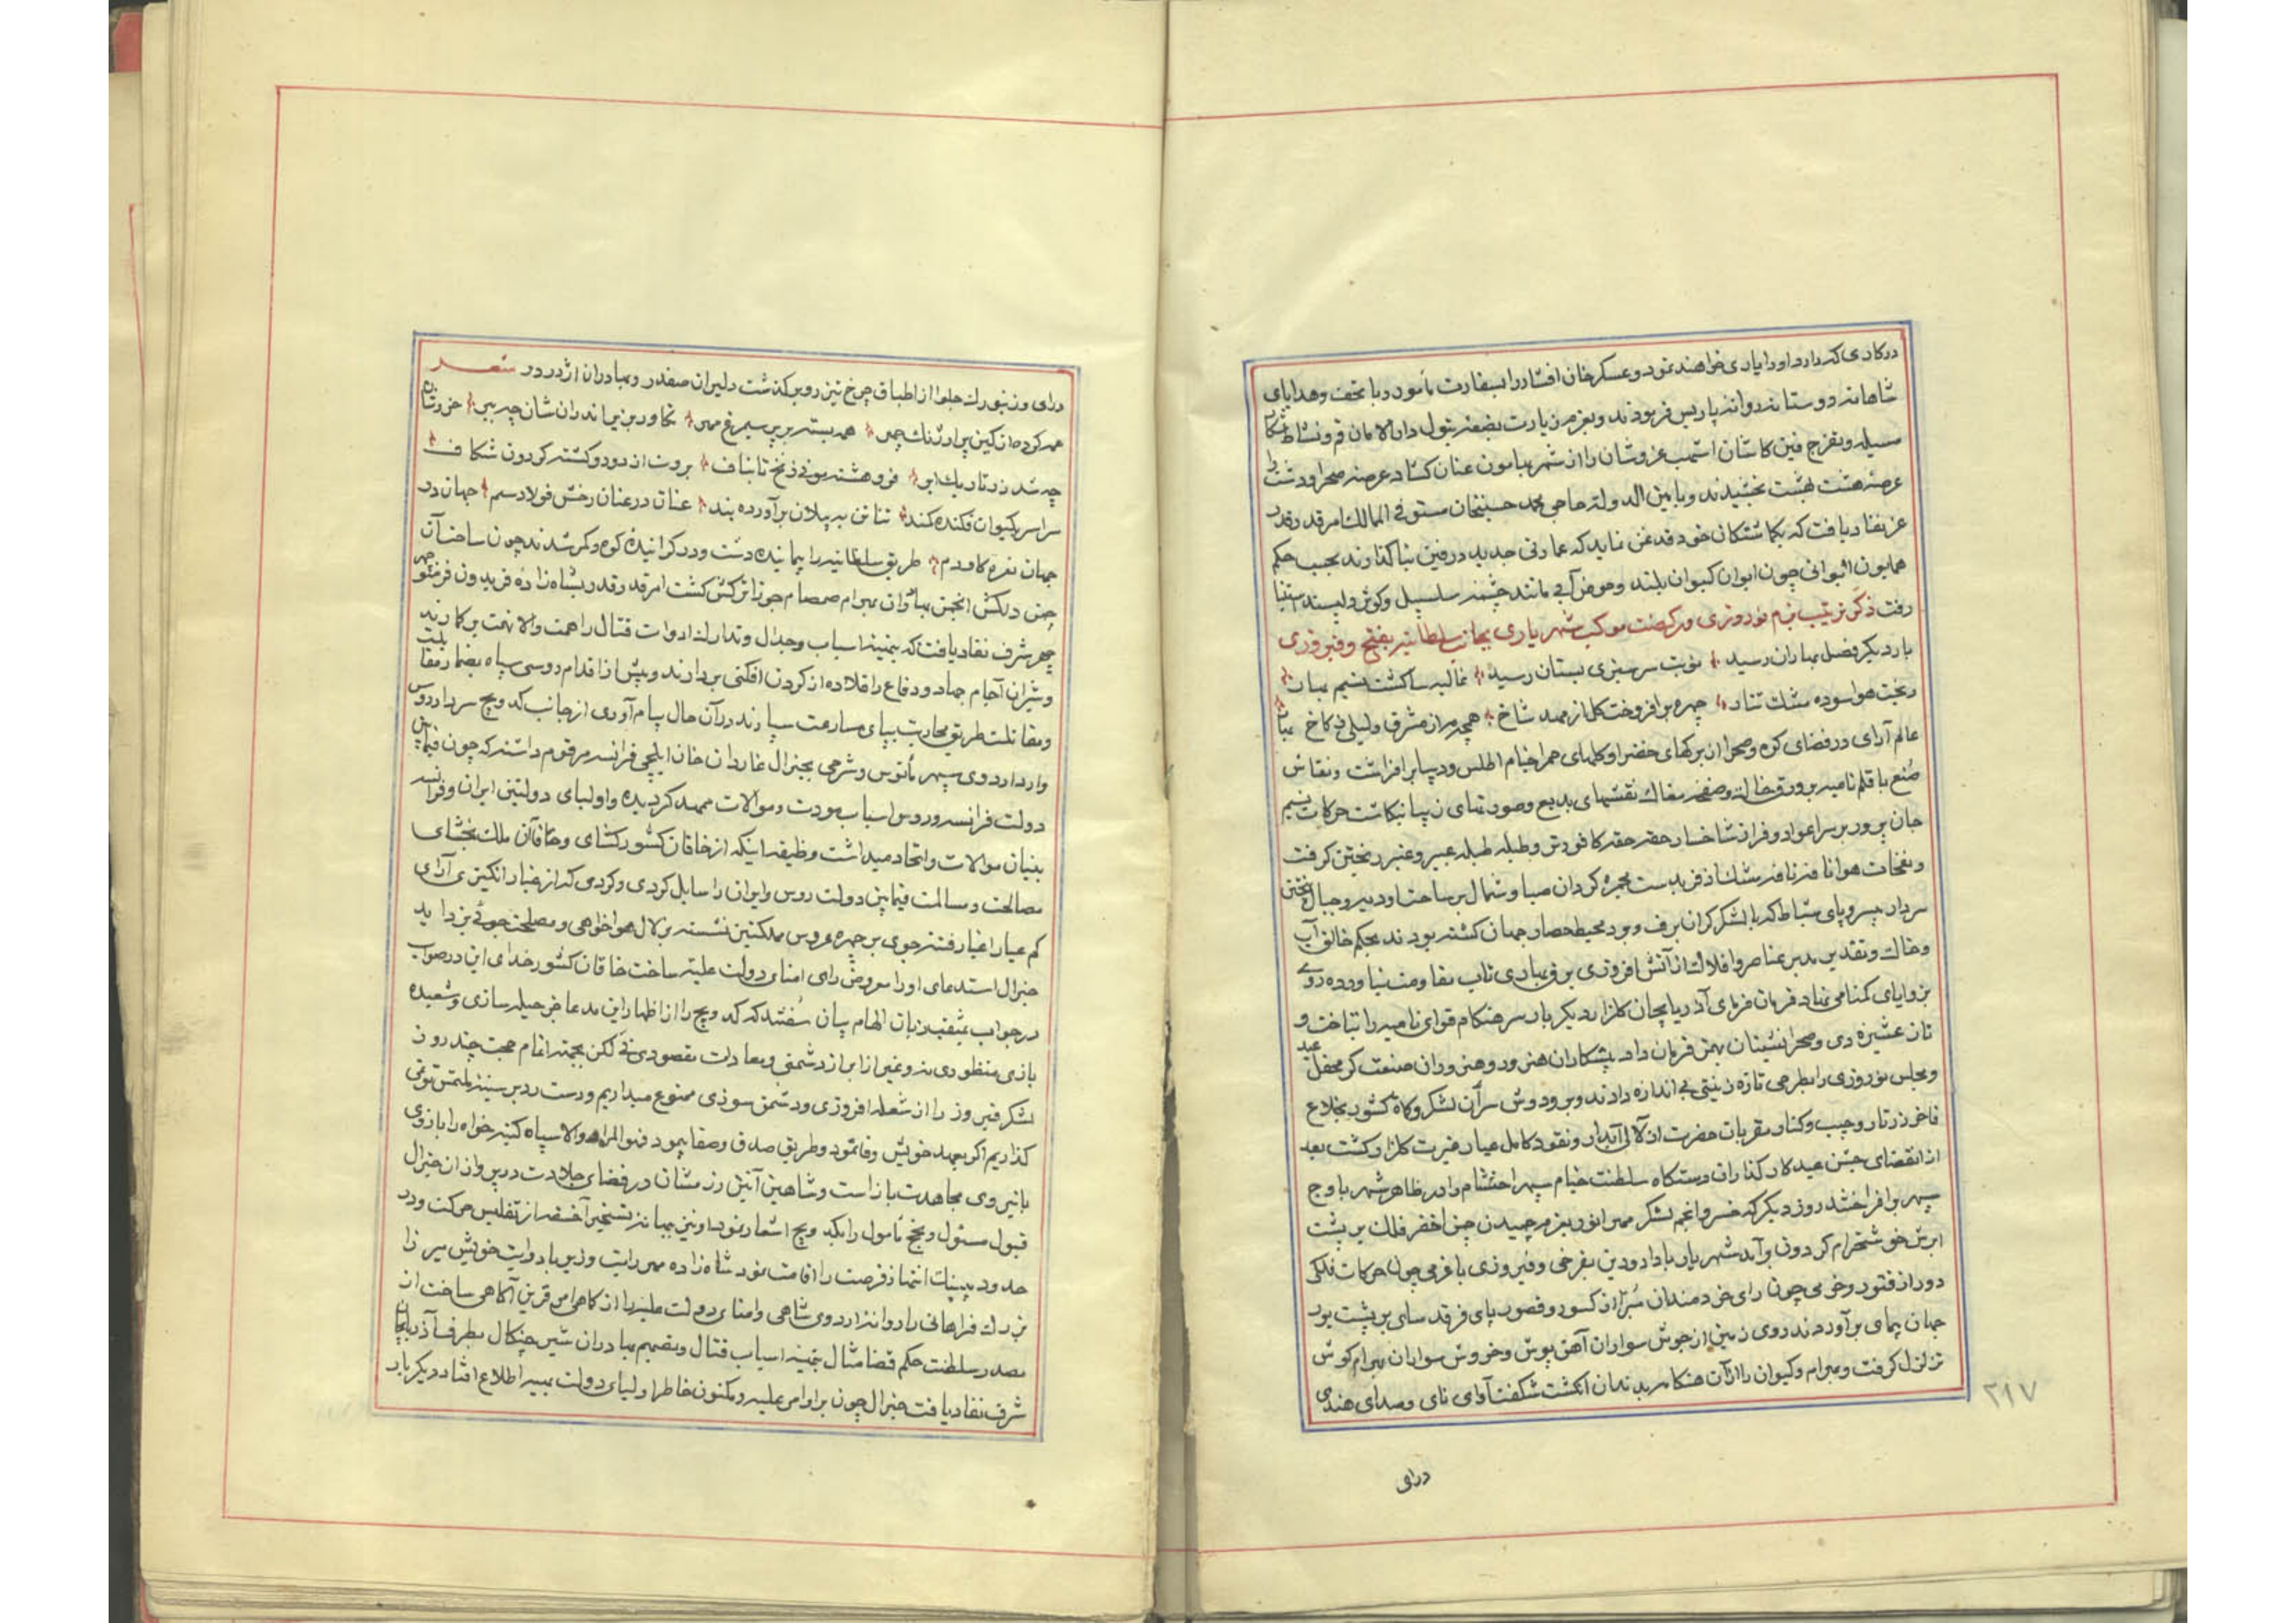 در کاری که دارد او را یاری خواهند نمود و عسکر خان افشار را بسفارت مأمور و با تحف و هدایای
شاهانه دوستانه روانه پاریس فرمودند و بعزم زیارت بضعه بتول دار الامان قم و نشاط شکار
مسیله و تفرج فین کاشان اشهب عز و شان را از شهر بهامون عنان کشاد عرصه صحرا و دشت را
عرصه هشت بهشت بخشیدند و بامین الدوله حاجی محمد حسینخان مستوفی الممالک امر قدر قدر
عز نفاد یافت که بکماشتکان خود قدغن نماید که عمارتی جدید در فین بنا کذارند بحسب حکم
همایون ایوانی چون ایوان کیوان بلند و حوض آبی مانند چشمه سلسبیل و کوثر دلپسند
رفت ذکر ترتیب بزم نوروزی و رکضت موکب شهریاری بجانب سلطانیه بفتح و فیروزی
بار دیکر فصل بهاران رسید نوبت سرسبزی بستان رسید غالیه سا کشت نسیم بهار
ریخت هوا سوده مشک تتار چهره برافروخت کل از مهد شاخ همچو مه از مشرق و لیلی ز کاخ
عالم آرای در فضای کوه و صحرا از برکهای خضرا و کلهای حمرا خیام اطلس و دیبا برافراشت و نقاش
صنع با قلم نامیه بر ورق خاک و صفحه مغاک نقشهای بدیع و صورتهای زیبا نکاشت حرکات نسیم
جان پرور بر سر اعواد و فراز شاخسار حقه حقه کافورش و طبله طبله عبیر و عنبر ریختن کرفت
و نفحات هوا نافه نافه مشک اذفر بدست مجمره کردان صبا و شمال بر ساحت اودیه و جبال بیختن
سردار بی سر و پای شتا که با لشکر کران برف و برد محیط حصار جهان کشته بودند بحکم خالق آب
و خاک و تقدیر مدبر عناصر و افلاک از آتش افروزی برق بهاری تاب مقاومت نیاورده روی
بزوایای کمنامی نهاد فرمان فرمای آذربایجان کلزار دیکر بار سرهنکام قوای نامیه را بتاخت و
تاز عشیره دی و صحرانشینان بهمن فرمان داد پیشکاران هنرور و هنروران صنعت کر محفل عید
و مجلس نوروزی را بطرحی تازه زینتی بی اندازه دادند و بر و دوش سران لشکر و کماة کشور بخلاع
فاخر زرتار و جیب و کنار مقربان حضرت از لآلی آبدار و نقود کامل عیار غیرت کلزار کشت بعد
از انقضای جشن عید کارکذاران دستکاه سلطنت خیام سپهر احتشام را در ظاهر شهر باوج
سپهر برافراختند روز دیکر که خسرو انجم لشکر مهر انور بعزم چمیدن چمن اخضر فلک بر پشت
ابرش خوشخرام کردون برآمد شهریار با داد و دین بفرخی و فیروزی با عزمی چون حرکات فلکی
دور از فتور و حزمی چون رای خردمندان مبرا از کسور و قصور پای فرقد سای بر پشت بور
جهان پیمای برآوردند روی زمین از جوش سواران آهن پوش و خروش سواران بهرام کوش
تزلزل کرفت و بهرام و کیوان را از آن هنکامه بدندان انکشت شکفت آوای نای و صدای هندی
درای
۲۱۷
درای و زنبورک جلوا از اطباق چرخ تیز رو برکذشت دلیران صفدر و بهادران اژدر در شعر
همه کرده از کین پر آژنک چهر همه بسته بر پر سیمرغ مهر تکاور بزیر اندران شان چو ببر خز رشان
چه شد زر تاریک ابر فروهشته موی زنخ تا بناف بروت از دو رو کشته کردون شکاف
سراسر بکیوان فکنده کمند تناتن به پیلان برآورده بند عنان در عنان رخش فولاد سم جهان در
جهان نعره کاودم طریق سلطانیه را پیماینده دشت و در کرانیده کوه و کمر شدند چون ساحت آن
چمن دلکش انجمن بهادران بهرام صمصام جوزا ترکش کشت امر قدر قدر بشاه زاده فریدون فر منوچهر
چهر شرف نفاد یافت که بتهیه اسباب جدال و تدارک ادوات قتال را همت والا نهمت بر کمارند
و شیران آجام جهاد و دفاع را قلاده از کردن افکنی بردارند و پیش از اقدام روسی سپاه بمضمار مقابلت
و مقاتلت طریق محاربت بپای مسارعت سپارند در آن حال پیام آوری از جانب کدویچ سردار روس
وارد اردوی سپهر مأنوس و شرحی بجنرال غاردان خان ایلچی فرانسه مرقوم داشته که چون فیمابین
دولت فرانسه و روس اسباب مودت و موالات ممهد کردیده و اولیای دولتین ایران و فرانسه
بنیان موالات و اتحاد میداشت وظیفه اینکه از خاقان کشورکشای و خاقان ملک بخشای
مصالحت و مسالمت فیمابین دولت روس و ایران را سایل کردی و کردی که از غبار انکیزی آرای
کم عیار اغیار فتنه جوی بر چهره عروس مملکتین نشسته بزلال هواخواهی و مصلحت جوئی بزداید
جنرال استدعای او را معروض رای امنای دولت علیه ساخت خاقان کشورخدای این در صواب
در جواب بمثقب زبان الهام بیان سفتند که کدویچ را از اظهار این مدعا جز حیله سازی و شعبده
بازی منظوری نه و غیر از ابراز دشمنی و معادات مقصودی نی لکن بجهة اتمام حجت چند روز
لشکر فیروز را از شعله افروزی و دشمن سوزی ممنوع میداریم و دست رد بر سینه ملتمس تو نمی
کذاریم اکر بعهد خویش وفا نمود و طریق صدق و صفا پیمود فهو المراد والا سپاه کینه خواه را بازوی
بانیروی مجاهدت باز است و شاهین آتشین رزمشان در فضای جلادت در پرواز از ان جنرال
قبول مسئول و نجح مأمول را بکدویچ اشعار نمود او نیز ببهانه تسخیر آخسقه از تفلیس حرکت و در
حدود بنبک انتهاز فرصت را اقامت نمود شاه زاده مهر رایت وزیر با درایت خویش میرزا
بزرک فراهانی را روانه اردوی شاهی و امنای دولت علیه را از کماهی امر قرین آکاهی ساخت از
مصدر سلطنت حکم قضا مثال بتهیه اسباب قتال و تصمیم بهادران شیر چنکال بطرف آذربایجان
شرف نفاد یافت جنرال چون بر اوامر علیه و مکنون خاطر اولیای دولت بهیه اطلاع افتاد دیکر بار